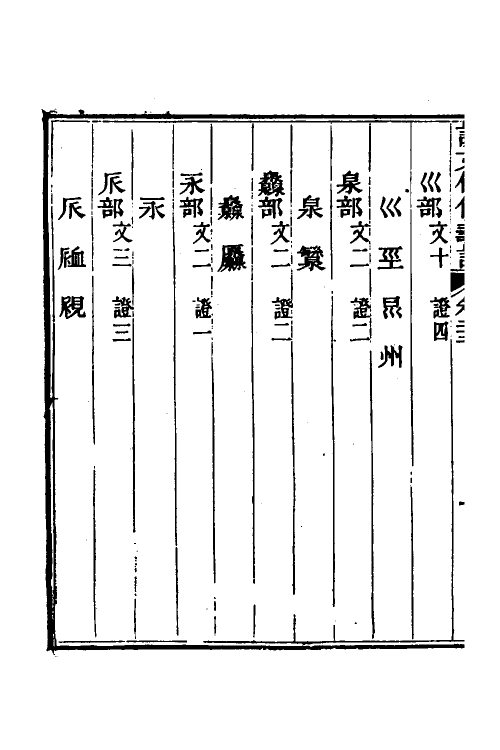 巛部文十 證四
巛 巠 州
泉部文二 證二
泉
灥部文二 證二
灥 厵
永部文二 證一
永
𠂢部文三 證三
𠂢 衇 覛